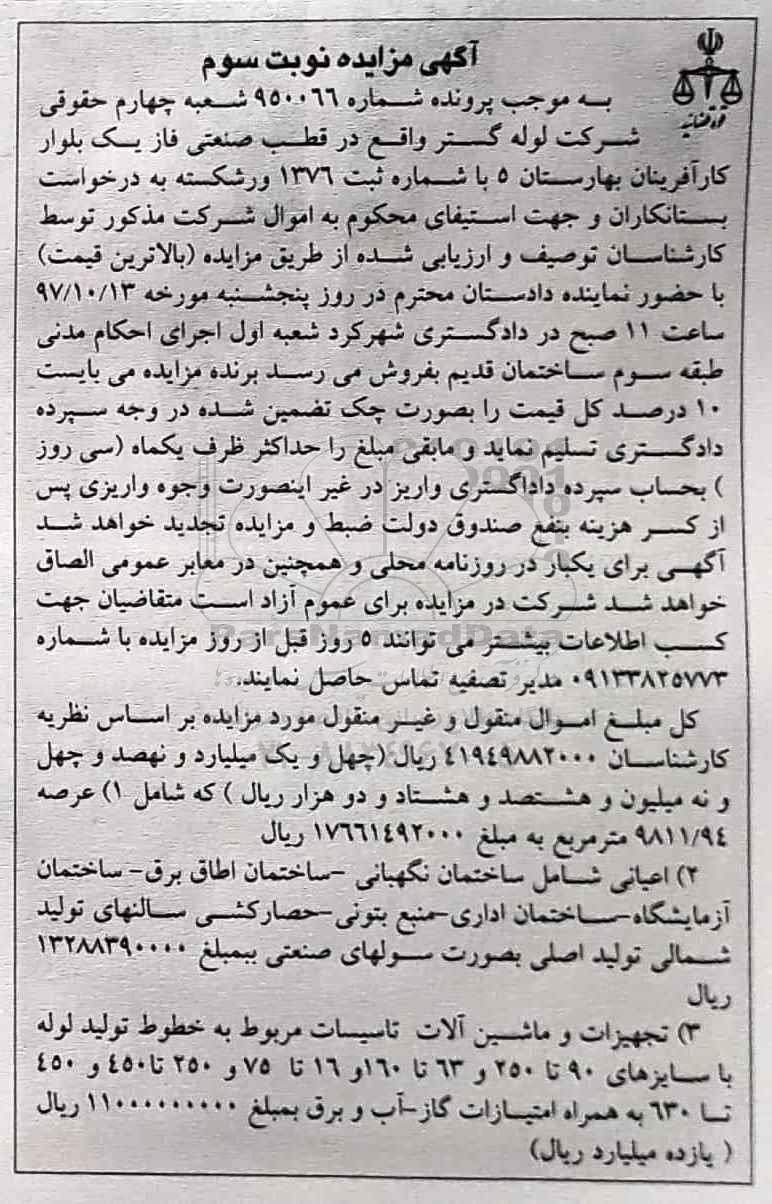 آگهی مزایده نوبت سوم
قوه قضائیه
به موجب پرونده شماره ۹۵۰۰۶۶ شعبه چهارم حقوقی
شرکت لوله گستر واقع در قطب صنعتی فاز یک بلوار
کارآفرینان بهارستان ۵ با شماره ثبت ۱۳۷۶ ورشکسته به درخواست
بستانکاران و جهت استیفای محکوم به اموال شرکت مذکور توسط
کارشناسان توصیف و ارزیابی شده از طریق مزایده (بالاترین قیمت)
با حضور نماینده دادستان محترم در روز پنجشنبه مورخه ۹۷/۱۰/۱۳
ساعت ۱۱ صبح در دادگستری شهرکرد شعبه اول اجرای احکام مدنی
طبقه سوم ساختمان قدیم بفروش می رسد برنده مزایده می بایست
۱۰ درصد کل قیمت را بصورت چک تضمین شده در وجه سپرده
دادگستری تسلیم نماید و مابقی مبلغ را حداکثر ظرف یکماه (سی روز
) بحساب سپرده داداگستری واریز در غیر اینصورت وجوه واریزی پس
از کسر هزینه بنفع صندوق دولت ضبط و مزایده تجدید خواهد شد
آگهی برای یکبار در روزنامه محلی و همچنین در معابر عمومی الصاق
خواهد شد شرکت در مزایده برای عموم آزاد است متقاضیان جهت
کسب اطلاعات بیشتر می توانند ۵ روز قبل از روز مزایده با شماره
۰۹۱۳۳۸۲۵۷۷۳ مدیر تصفیه تماس حاصل نمایند.
کل مبلغ اموال منقول و غیر منقول مورد مزایده بر اساس نظریه
کارشناسان ۴۱۹۴۹۸۸۲۰۰۰ ریال (چهل و یک میلیارد و نهصد و چهل
و نه میلیون و هشتصد و هشتاد و دو هزار ریال ) که شامل ۱) عرصه
۹۸۱۱/۹۴ مترمربع به مبلغ ۱۷۶۶۱۴۹۲۰۰۰ ریال
۲) اعیانی شامل ساختمان نگهبانی -ساختمان اطاق برق- ساختمان
آزمایشگاه-ساختمان اداری-منبع بتونی-حصارکشی سالنهای تولید
شمالی تولید اصلی بصورت سولهای صنعتی ببمبلغ ۱۳۲۸۸۳۹۰۰۰۰
ریال
۳) تجهیزات و ماشین آلات تاسیسات مربوط به خطوط تولید لوله
با سایزهای ۹۰ تا ۲۵۰ و ۶۳ تا ۱۶۰و ۱۶ تا ۷۵ و ۲۵۰ تا۴۵۰ و ۴۵۰
تا ۶۳۰ به همراه امتیازات گاز-آب و برق بمبلغ ۱۱۰۰۰۰۰۰۰۰۰ ریال
( یازده میلیارد ریال)
ParsNamadData